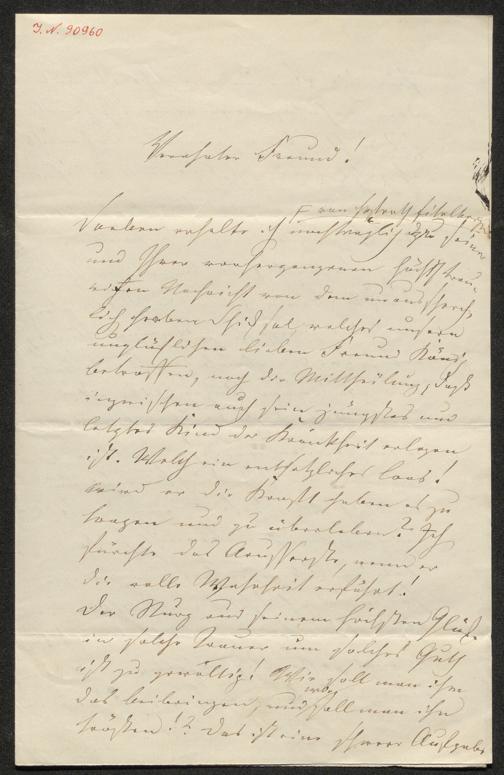 I. N. 90960
Verehrter Freund!
von Hofrath Eitelberger
Soeben erhalte ich nachträglich zu seiner
und Ihrer vorhergegangenen höchst trau-
rigen Nachricht von dem unaussprech-
lich herben Schicksal, welches unsern
unglücklichen lieben Freund
betroffen, noch die Mittheilung, daß
inzwischen auch sein jüngstes und
letztes Kind der Krankheit erlegen
ist. Welch ein entsetzliches Loos!
wird er die Kraft haben es zu
tragen und zu überleben? Ich
fürchte das Aeusserste, wenn er
die volle Wahrheit erfährt!
Der Sturz aus seinem höchsten Glück
in solche Trauer um solches Gut
ist zu gewaltig! Wie soll man ihm
das beibringen, und womit soll man ihn
trösten!? Das ist eine schwere Aufgabe